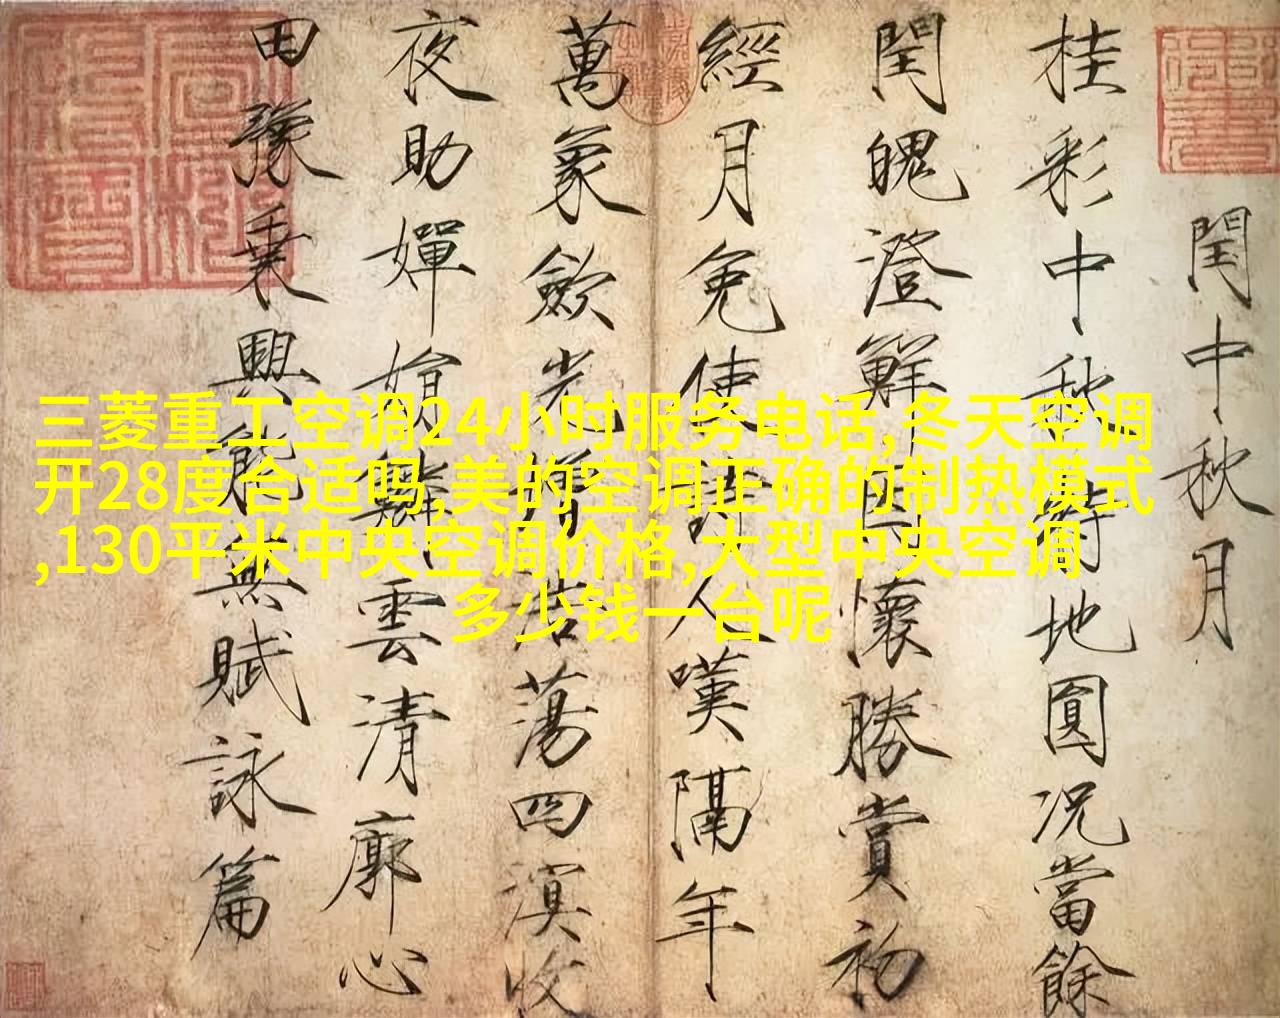 三菱重工空调24小时服务电话,冬天空调
开28度合适吗,美的空调正确的制热模式
,130平米中央空调价格,大型中央空调
多少钱一台呢
閏中秋月
桂彩中秋特地圓况當餘
閏魄澄鮮因懷勝賞初
經月免使詩人嘆隔年
萬象歛光增浩蕩四溟收
夜助嬋娟鱗雲清廓心
田豫乗興能無賦詠篇